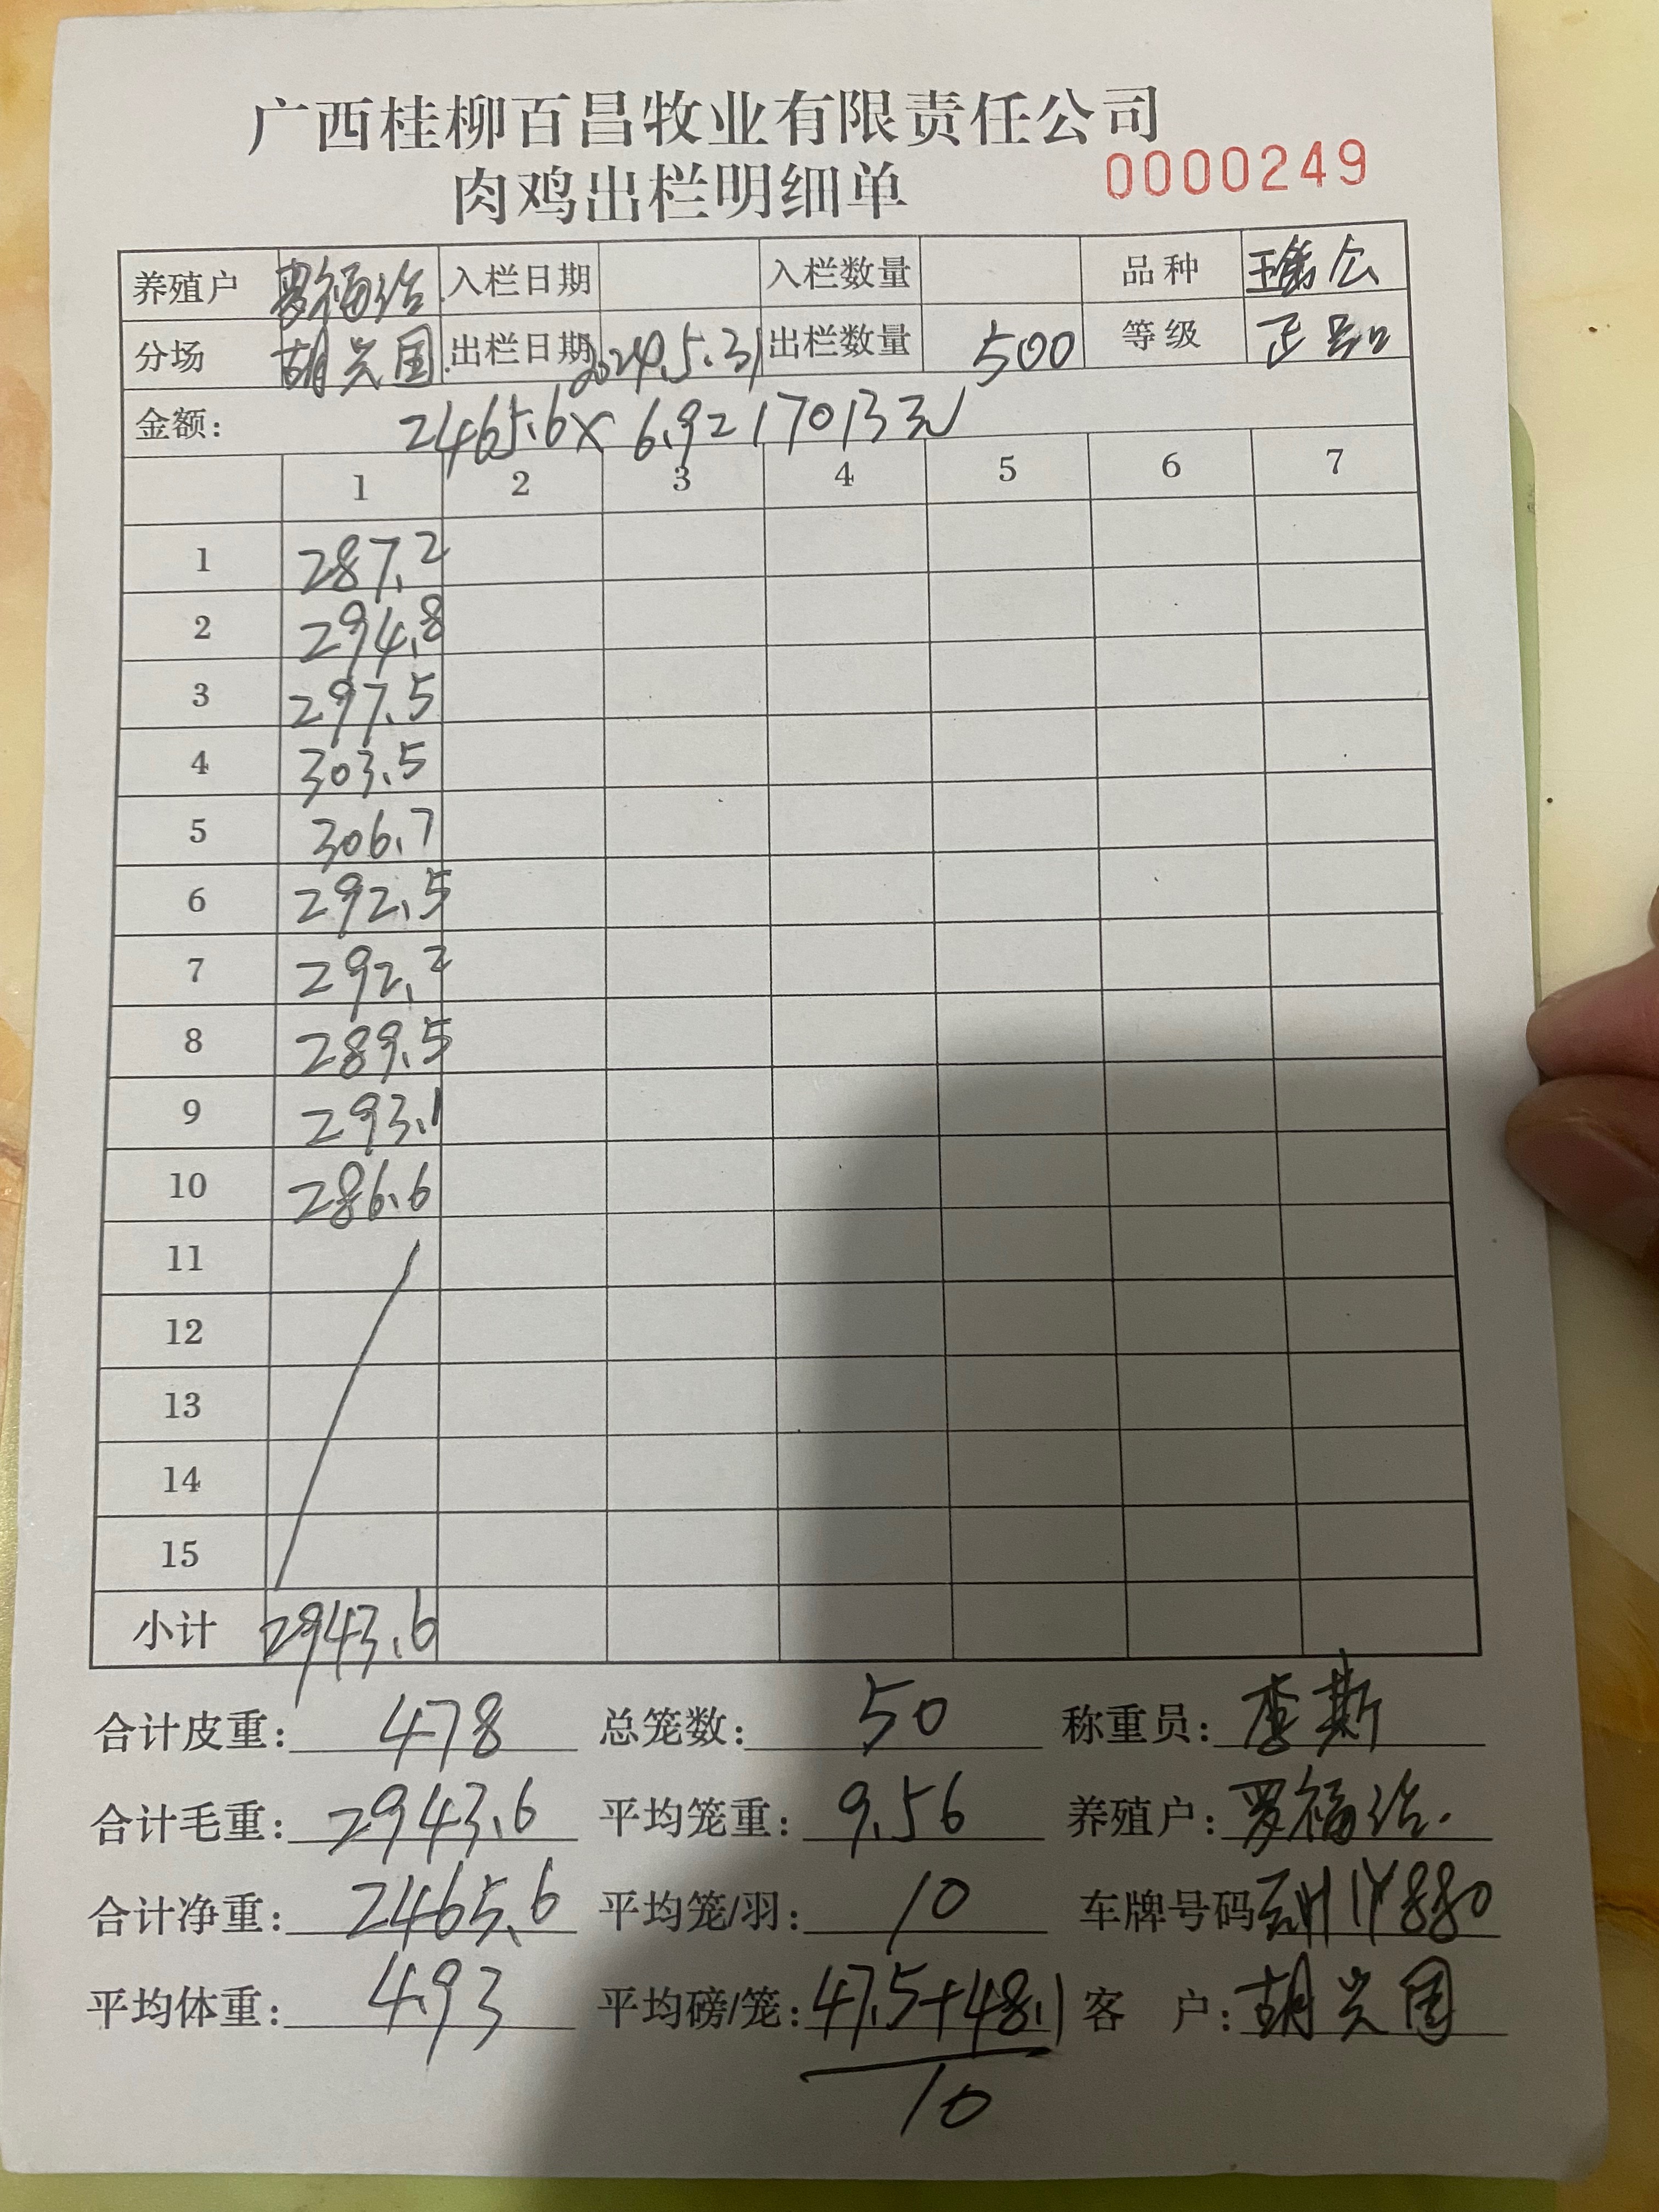 广西桂柳百昌牧业有限责任公司
肉鸡出栏明细单 0000249
养殖户 罗福 入栏日期 入栏数量 品种 公
分场 胡兴国 出栏日期 2024.5.31 出栏数量 500 等级 正品
金额: 2465.6× 6.92 17013元
1 2 3 4 5 6 7
1 287.2
2 294.8
3 297.5
4 303.5
5 306.7
6 292.5
7 292.2
8 289.5
9 293.1
10 286.6
11
12
13
14
15
小计 2943.6
合计皮重: 478 总笼数: 50 称重员: 李斯
合计毛重: 2943.6 平均笼重: 9.56 养殖户: 罗福
合计净重: 2465.6 平均笼/羽: 10 车牌号码 880
平均体重: 4.93 平均磅/笼: 47.5+48.1 客 户: 胡兴国
10